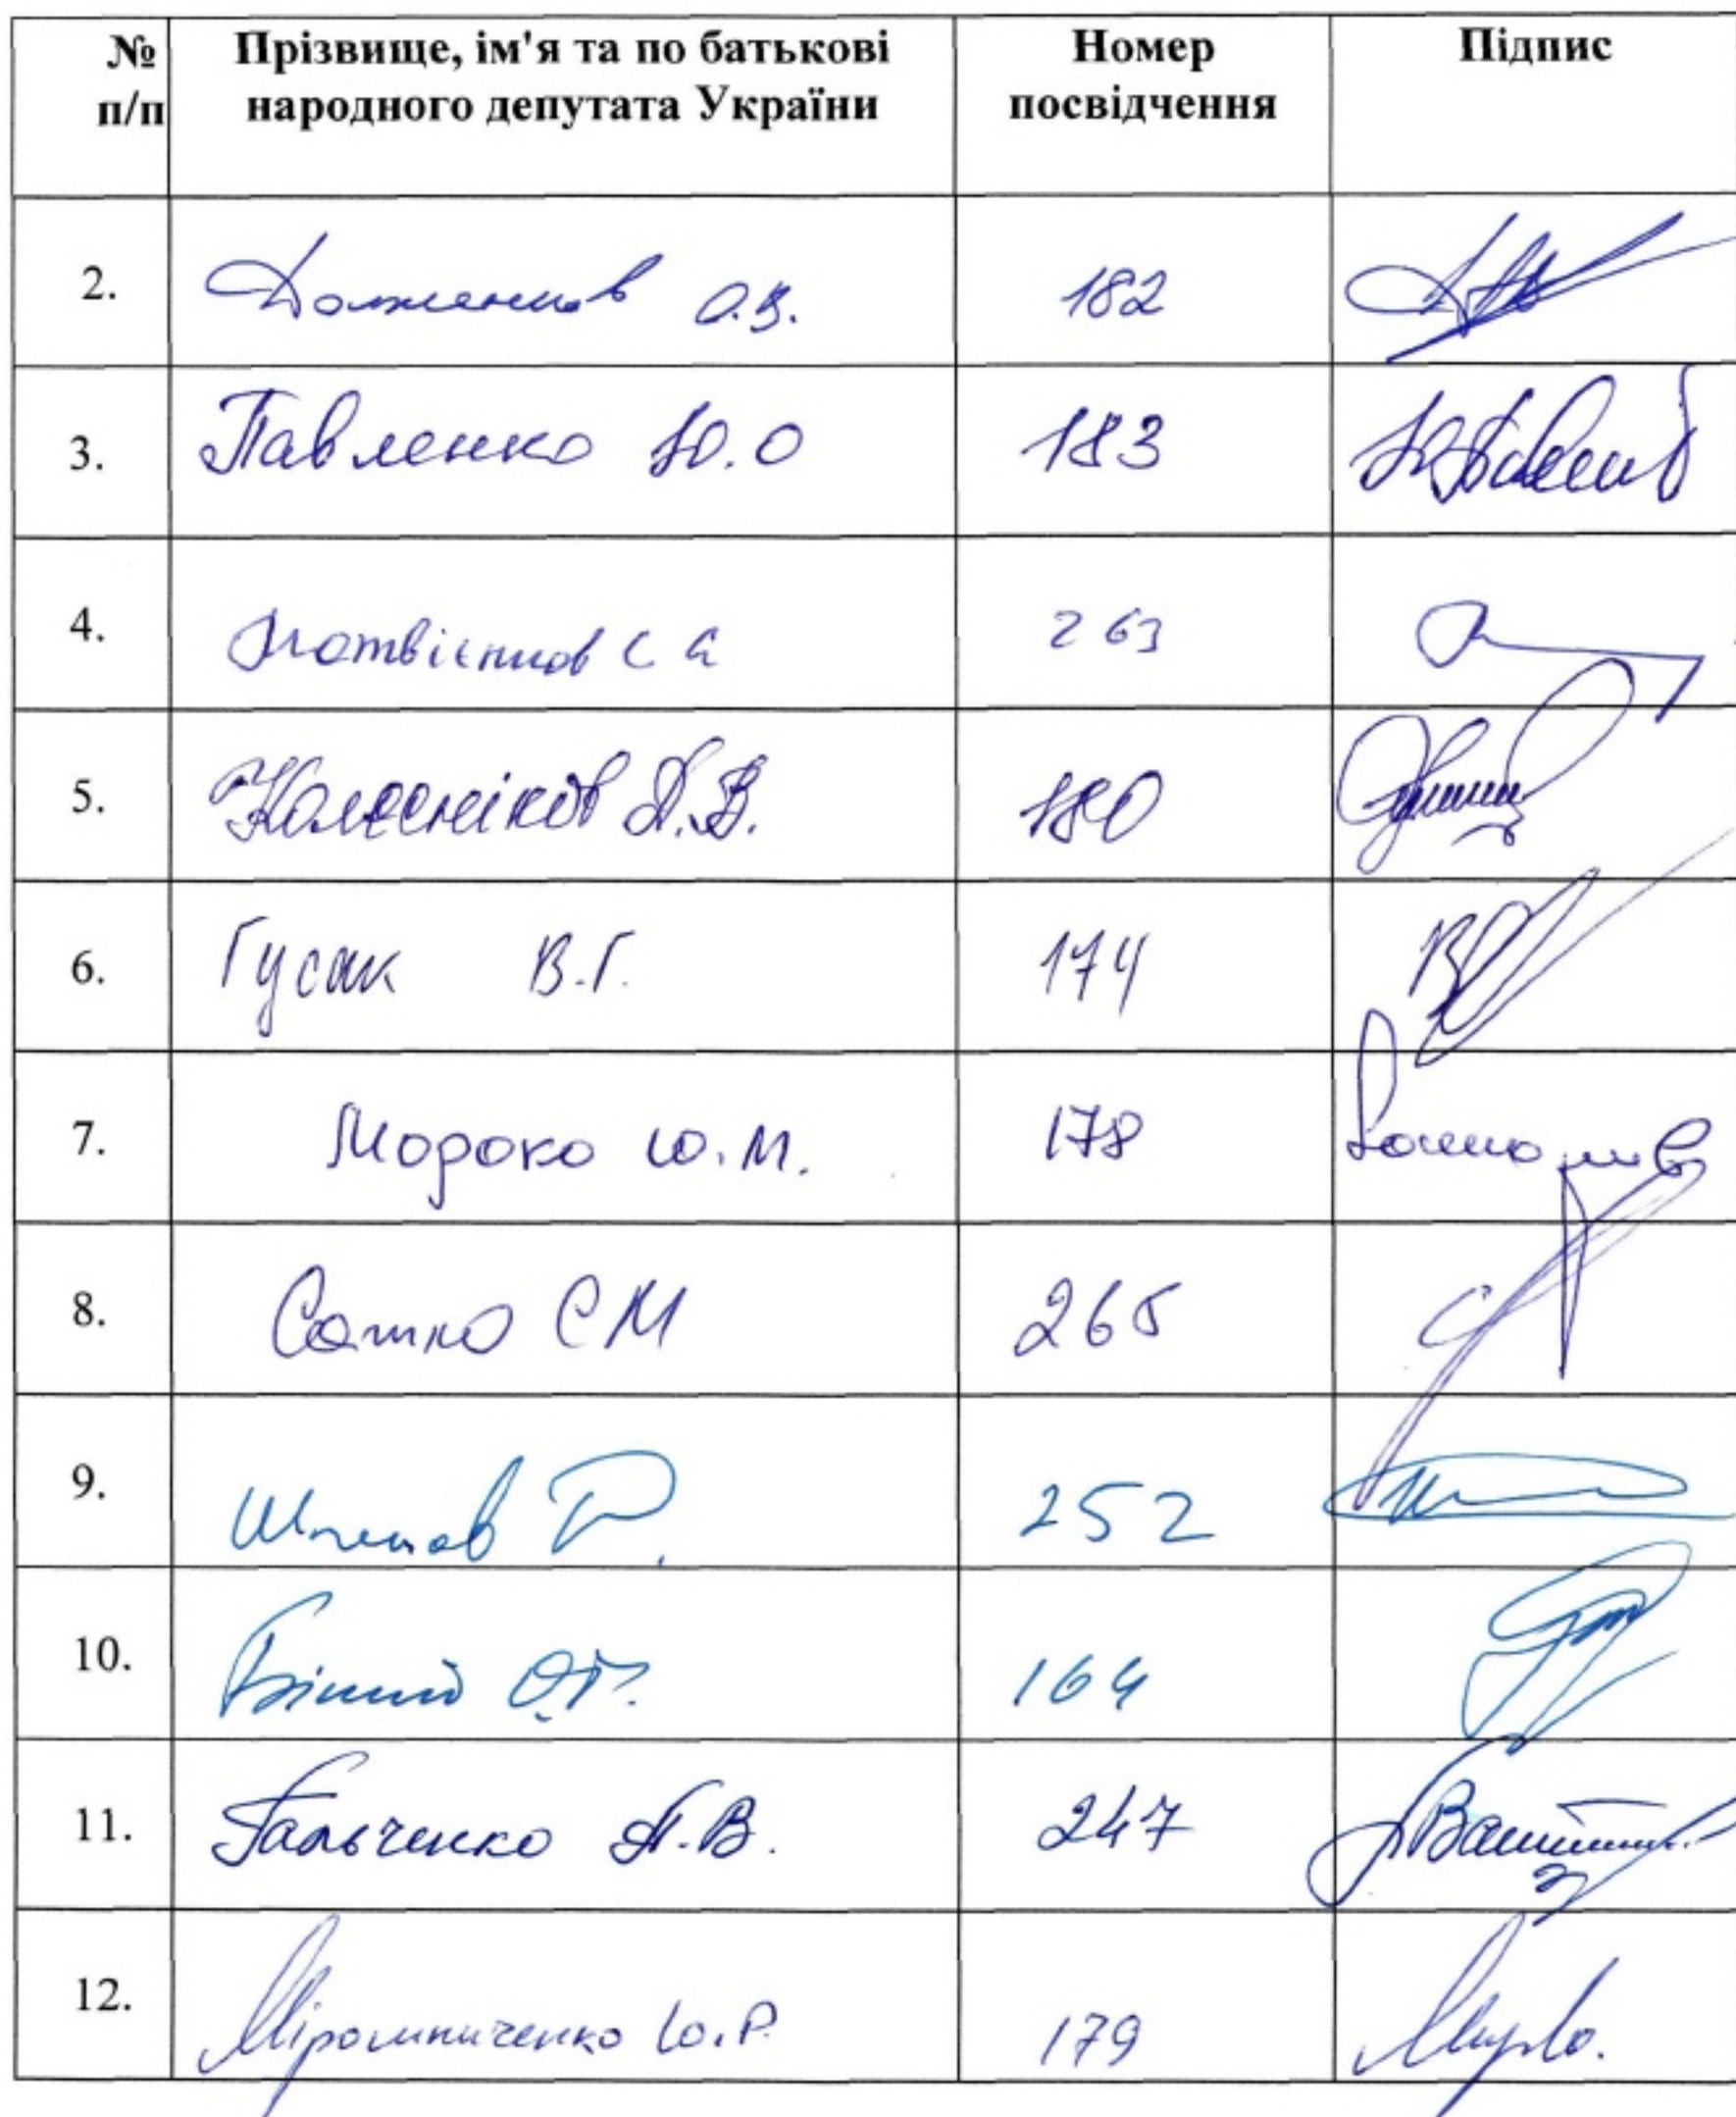 № п/п Прізвище, ім'я та по батькові народного депутата України Номер посвідчення Підпис
2. Долженков О.В. 182
3. Павленко Ю.О 183
4. Матвієнков С А 263
5. Колєсніков Д.В. 180
6. Гусак В.Г. 174
7. Мороко Ю.М. 178
8. Сажко С М 265
9. Шпенов 252
10. Білий О.П. 164
11. Гальченко А.В. 247
12. Мірошниченко Ю.Р. 179